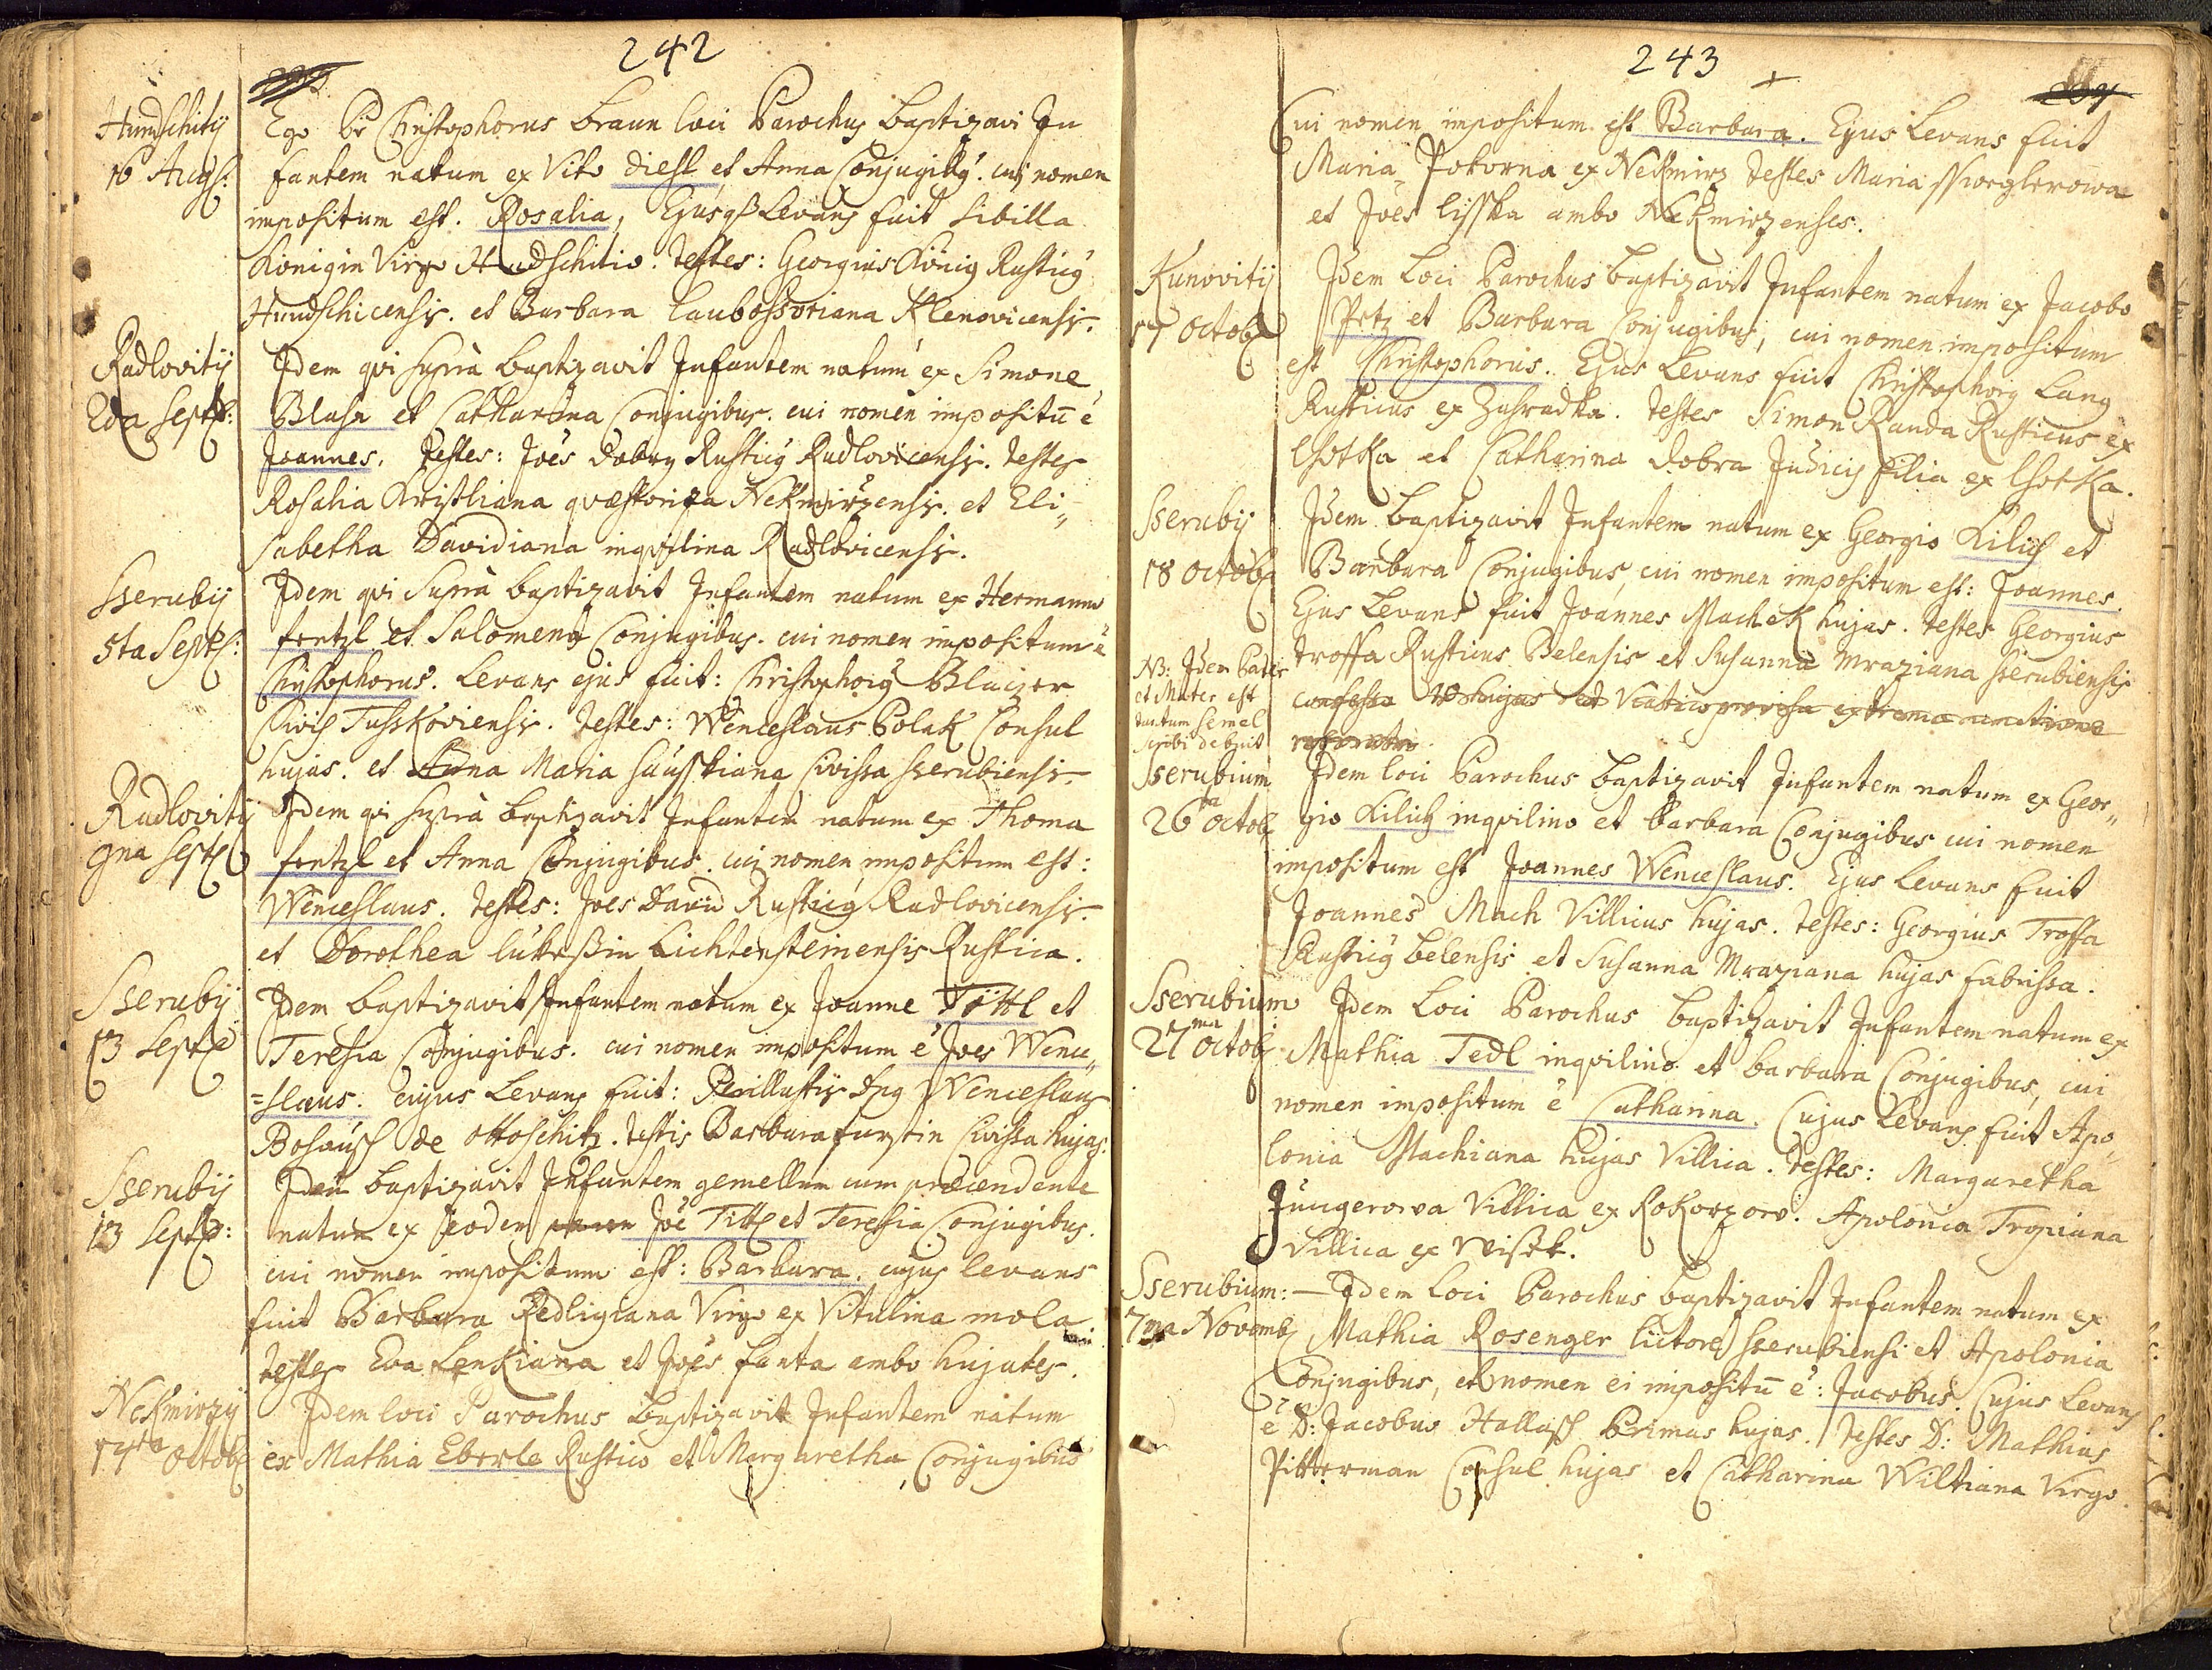 242
Hundschitij
16 Aug:
Ego Pr Christophorus Braun loci Parochus baptizavi In
fantem natum ex Vito Diesl et Anna Conjugibus. cui nomen
impositum est. Rosalia, Ejusque Levans fuit Sibilla
Königin Virgo Hundschitio. Testes: Georgius König Rusticus
Hundschicensis. et Barbara Klenovicensis.
Radlovitij
2da Septb:
Idem qvi suprà baptizavit Infantem natum ex Simone
Blaha et Catharina Conjugibus. cui nomen impositū ē
Joannes. Testes: Joēs Dobry Rusticus Radlovicensis. Testes
Rosalia Kristliana qvæstoriza Nekmirzensis. et Eli„
sabetha Davidiana inqvilina Radlovicensis.
Sserubij
5ta Septb:
Idem qvi Suprà baptizavit Infantem natum ex Hermanno
frntzl et Salomena Conjugibus. cui nomen impositum ē
Christophorus. Levans ejus fuit: Christophorus Blaizer
Civis Tusskoviensis. Testes: Wenceslaus Polak Consul
hujas. et Anna Maria Civissa Sserubiensis.
Radlovitij
9na Septb
Idem qvi suprà baptizavit Infantem natum ex Thoma
frntzl et Anna Conjugibus. cui nomen impositum est:
Wenceslaus. Testes: Joes David Rusticus Radlovicensis.
et Dorothea Lichtensteinensis Rustica.
Sseruby
13 Septb
Idem baptizavit Infantem natum ex Joanne Tittl et
Teresia Conjugibus. cui nomen impositum ē Joes Wence„
=slaus. cujus Levans fuit: Perillustris Dnus Wenceslaus
de Ottoschitz. Testis Barbara furstin Civissa hujas.
Sserubij
13 Septb:
Idem baptizavit Infantem gemellum cum præcendente
natum ex eodem Joē Tittl et Teresia Conjugibus.
cui nomen impositum est: Barbara. cujus levans
fuit Barbara Redligiana Virgo ex Vitulina mola
testes Eva Lenkiana et Joēs fanta ambo hujates.
Nekmirzij
Octob
Idem loci Parochus baptizavit Infantem natum
ex Mathia Eberle Rustico et Margaretha Conjugibus
243
Cui nomen impositum est Barbara. Ejus Levans fuit
Maria Pokorna ex Nekmirz Testes Maria
et Joēs Lisska ambo Nekmirzenses.
Kunovitij
17 Octob
Idem Loci Parochus baptizavit Infantem natum ex Jacobo
Petz et Barbara Conjugibus, cui nomen impositum
est Christophorus. Ejus Levans fuit Christophorus Lang
Rusticus ex Zahradka. Testes Simon Randa Rusticus ex
Lhotka et Catharina Dobra Judicis filia ex Lhotka.
Sserubij
18 Octob
Idem baptizavit Infantem natum ex Georgio Kilich et
Barbara Conjugibus, cui nomen impositum est: Joannes.
Ejus Levans fuit Joannes Machek hujas. Testes Georgius
Troffa Rusticus Belensis et Susanna Mraziana Sserubiensis
NB: Idem Pater
et Mater est
tantum semel
scribi debuit
confessa hujas Viatico provisa extrema unctione
Sserubium
26ta Octob
Idem loci Parochus baptizavit Infantem natum ex Geor„
gio Kilich inqvilino et Barbara Conjugibus cui nomen
impositum est Joannes Wenceslaus. Ejus Levans fuit
Joannes Mach Villicus hujas. Testes: Georgius Troffa
Rusticus belensis et Susanna Mraziana hujas fabrissa.
Sserubium
27ma Octob
Idem Loci Parochus baptizavit Infantem natum ex
Mathia Tedl inqvilino et barbara Conjugibus, cui
nomen impositum ē Catharina. Cujus Levans fuit Apo„
lonia Machiana hujas Villica. Testes: Margaretha
Jungerowa Villica ex Kokorzow. Apolonia Tropiana
Villica ex
Sserubium:
7ma Novemb
Idem Loci Parochus baptizavit Infantem natum ex
Mathia Rosenger lictore Sserubiensi et Apolonia
Conjugibus, et nomen ei impositū ē: Jacobus. Cujus Levans
ē D: Jacobus Hallasch Primas hujas. Testes D: Mathias
Pitterman Consul hujas et Catharina Wiltiana Virgo.